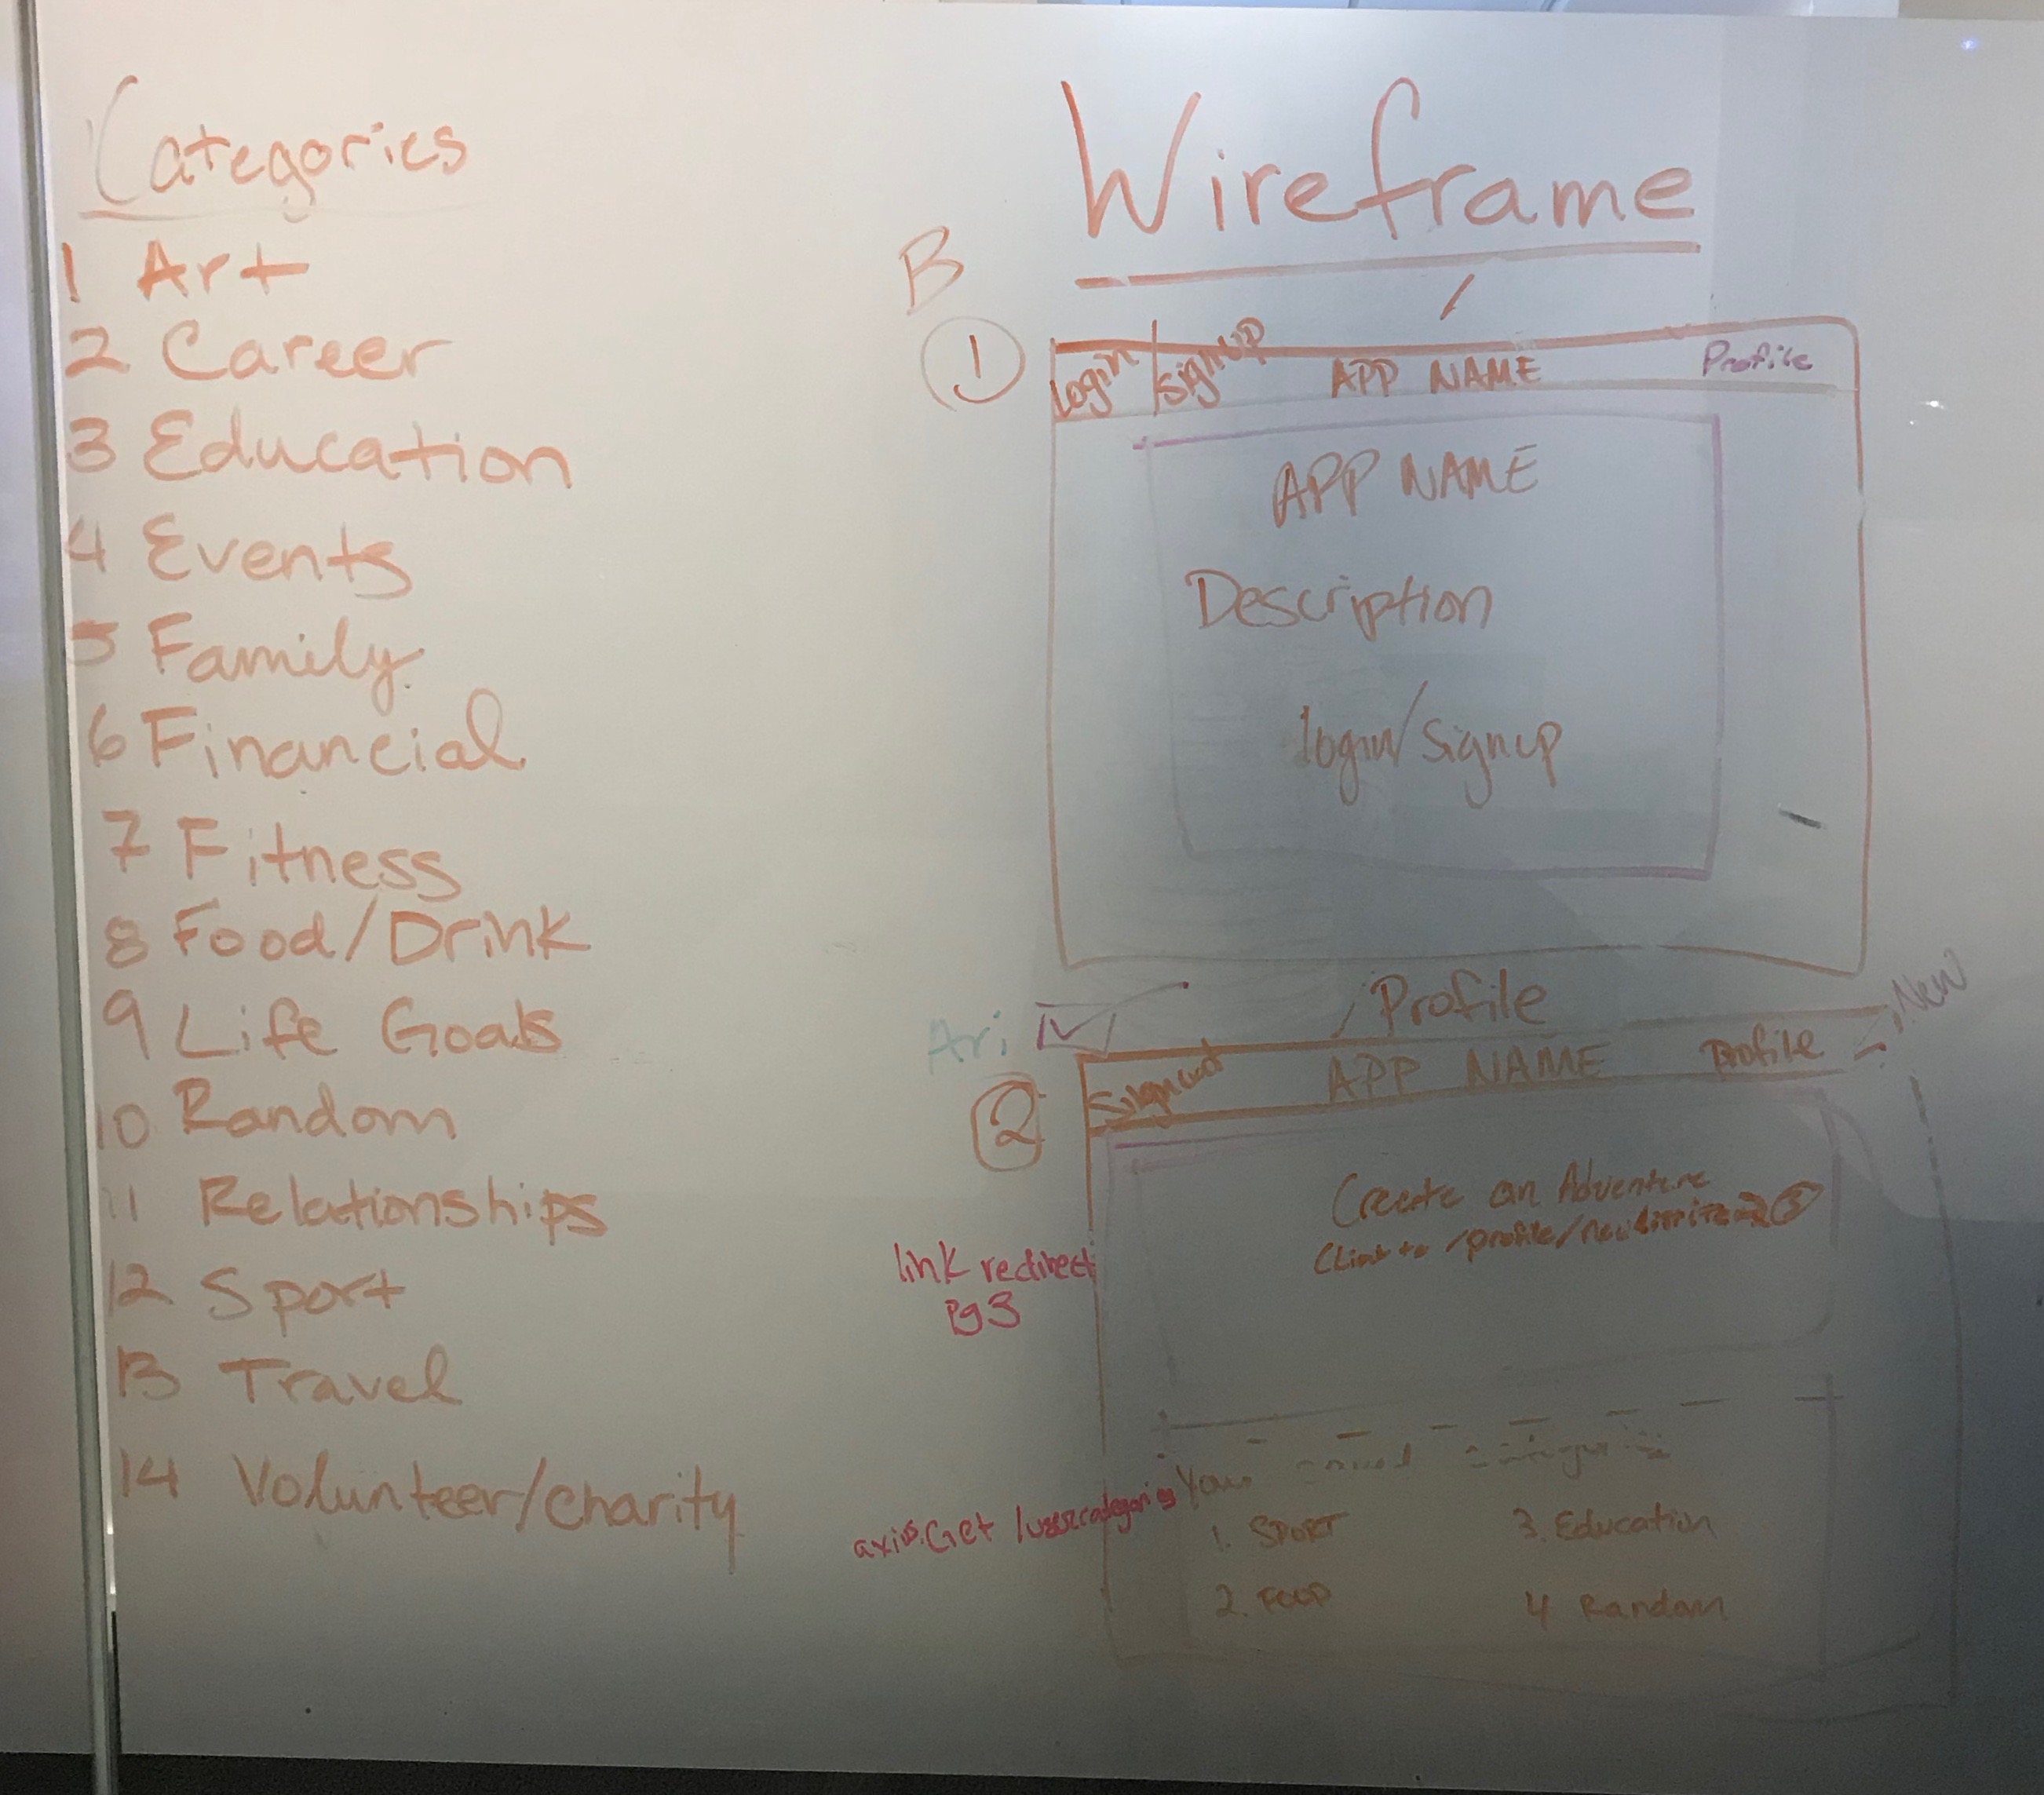 Categories
1 Art
2 Career
3 Education
4 Events
5 Family
6 Financial
7 Fitness
8 Food/Drink
9 Life Goals
10 Random
11 Relationships
12 Sport
13 Travel
14 Volunteer/charity
Wireframe
B
1
login signup APP NAME Profile
APP NAME
Description
login/signup
/Profile
Ari
New
2
Signout APP NAME Profile
Create an Adventure
/profile/
3
link redirect
pg 3
Your saved categories
axios.Get /usercategories
1. SPORT 3. Education
2. FOOD 4 Random